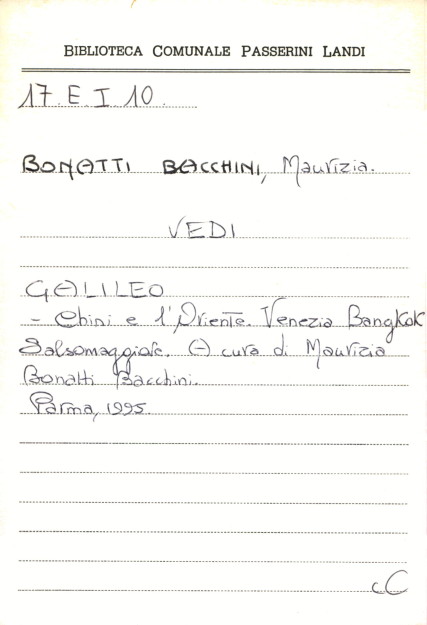 BIBLIOTECA COMUNALE PASSERINI LANDI
17. E. I 10.
BONATTI BACCHINI, Maurizia.
VEDI
GALILEO
- Chini e l'Oriente. Venezia Bangkok
Salsomaggiore. A cura di Maurizia
Bonatti Bacchini.
Parma, 1995
cC